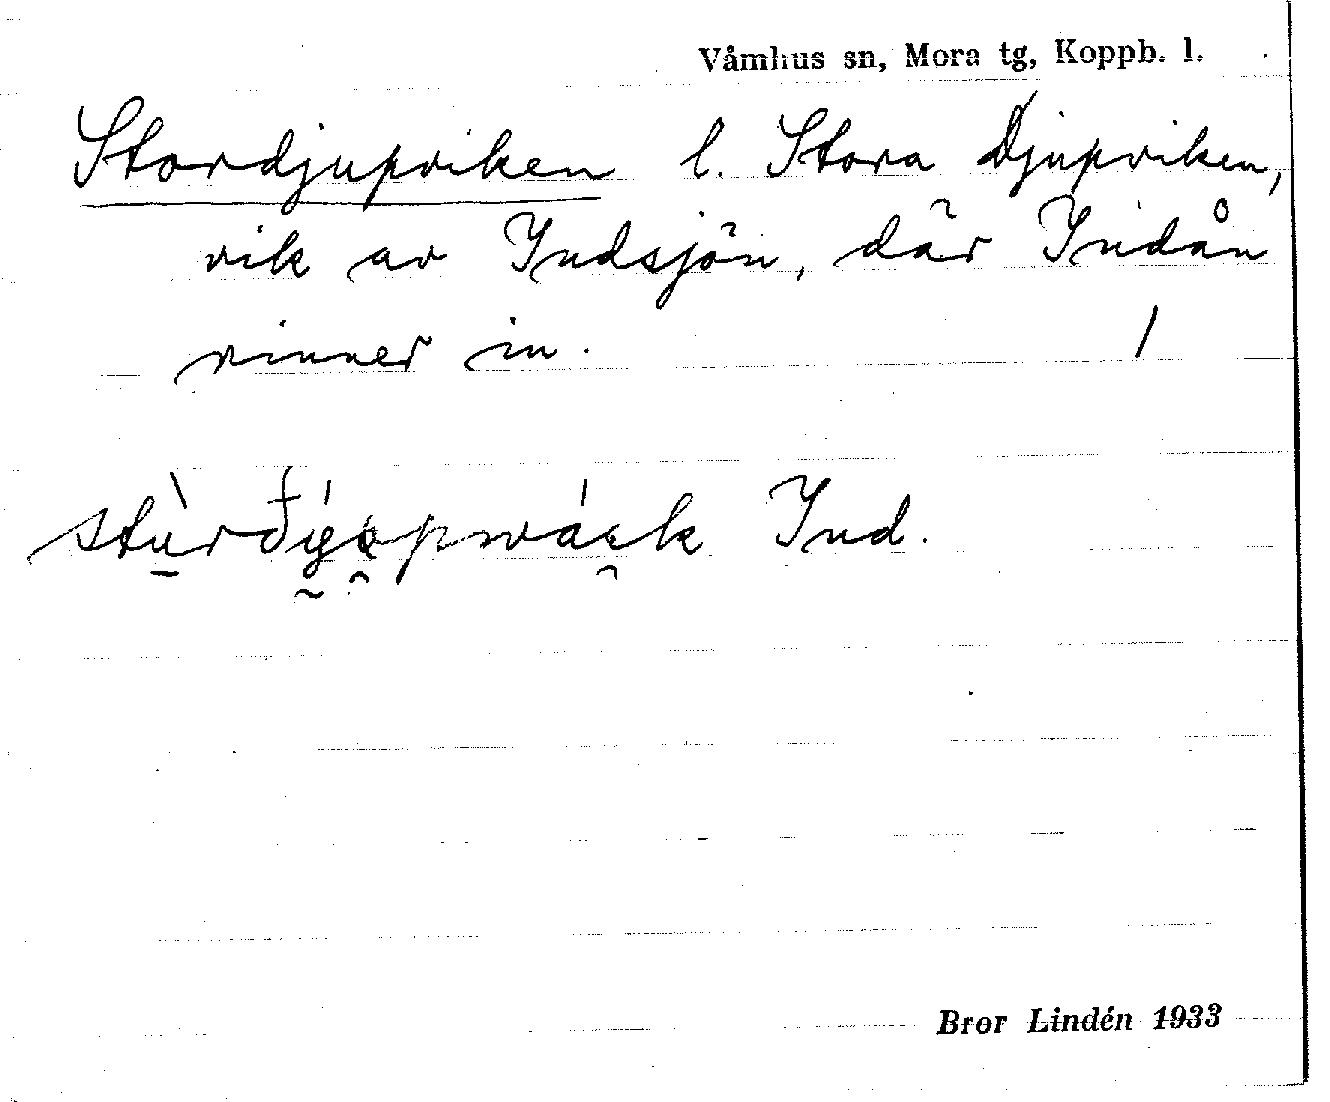 Våmhus sn, Mora tg, Koppb. l.
Stordjupviken l. Stora Djupviken,
vik av Indsjön, där Indån
rinner in. /
Ind.
Bror Lindén 1933